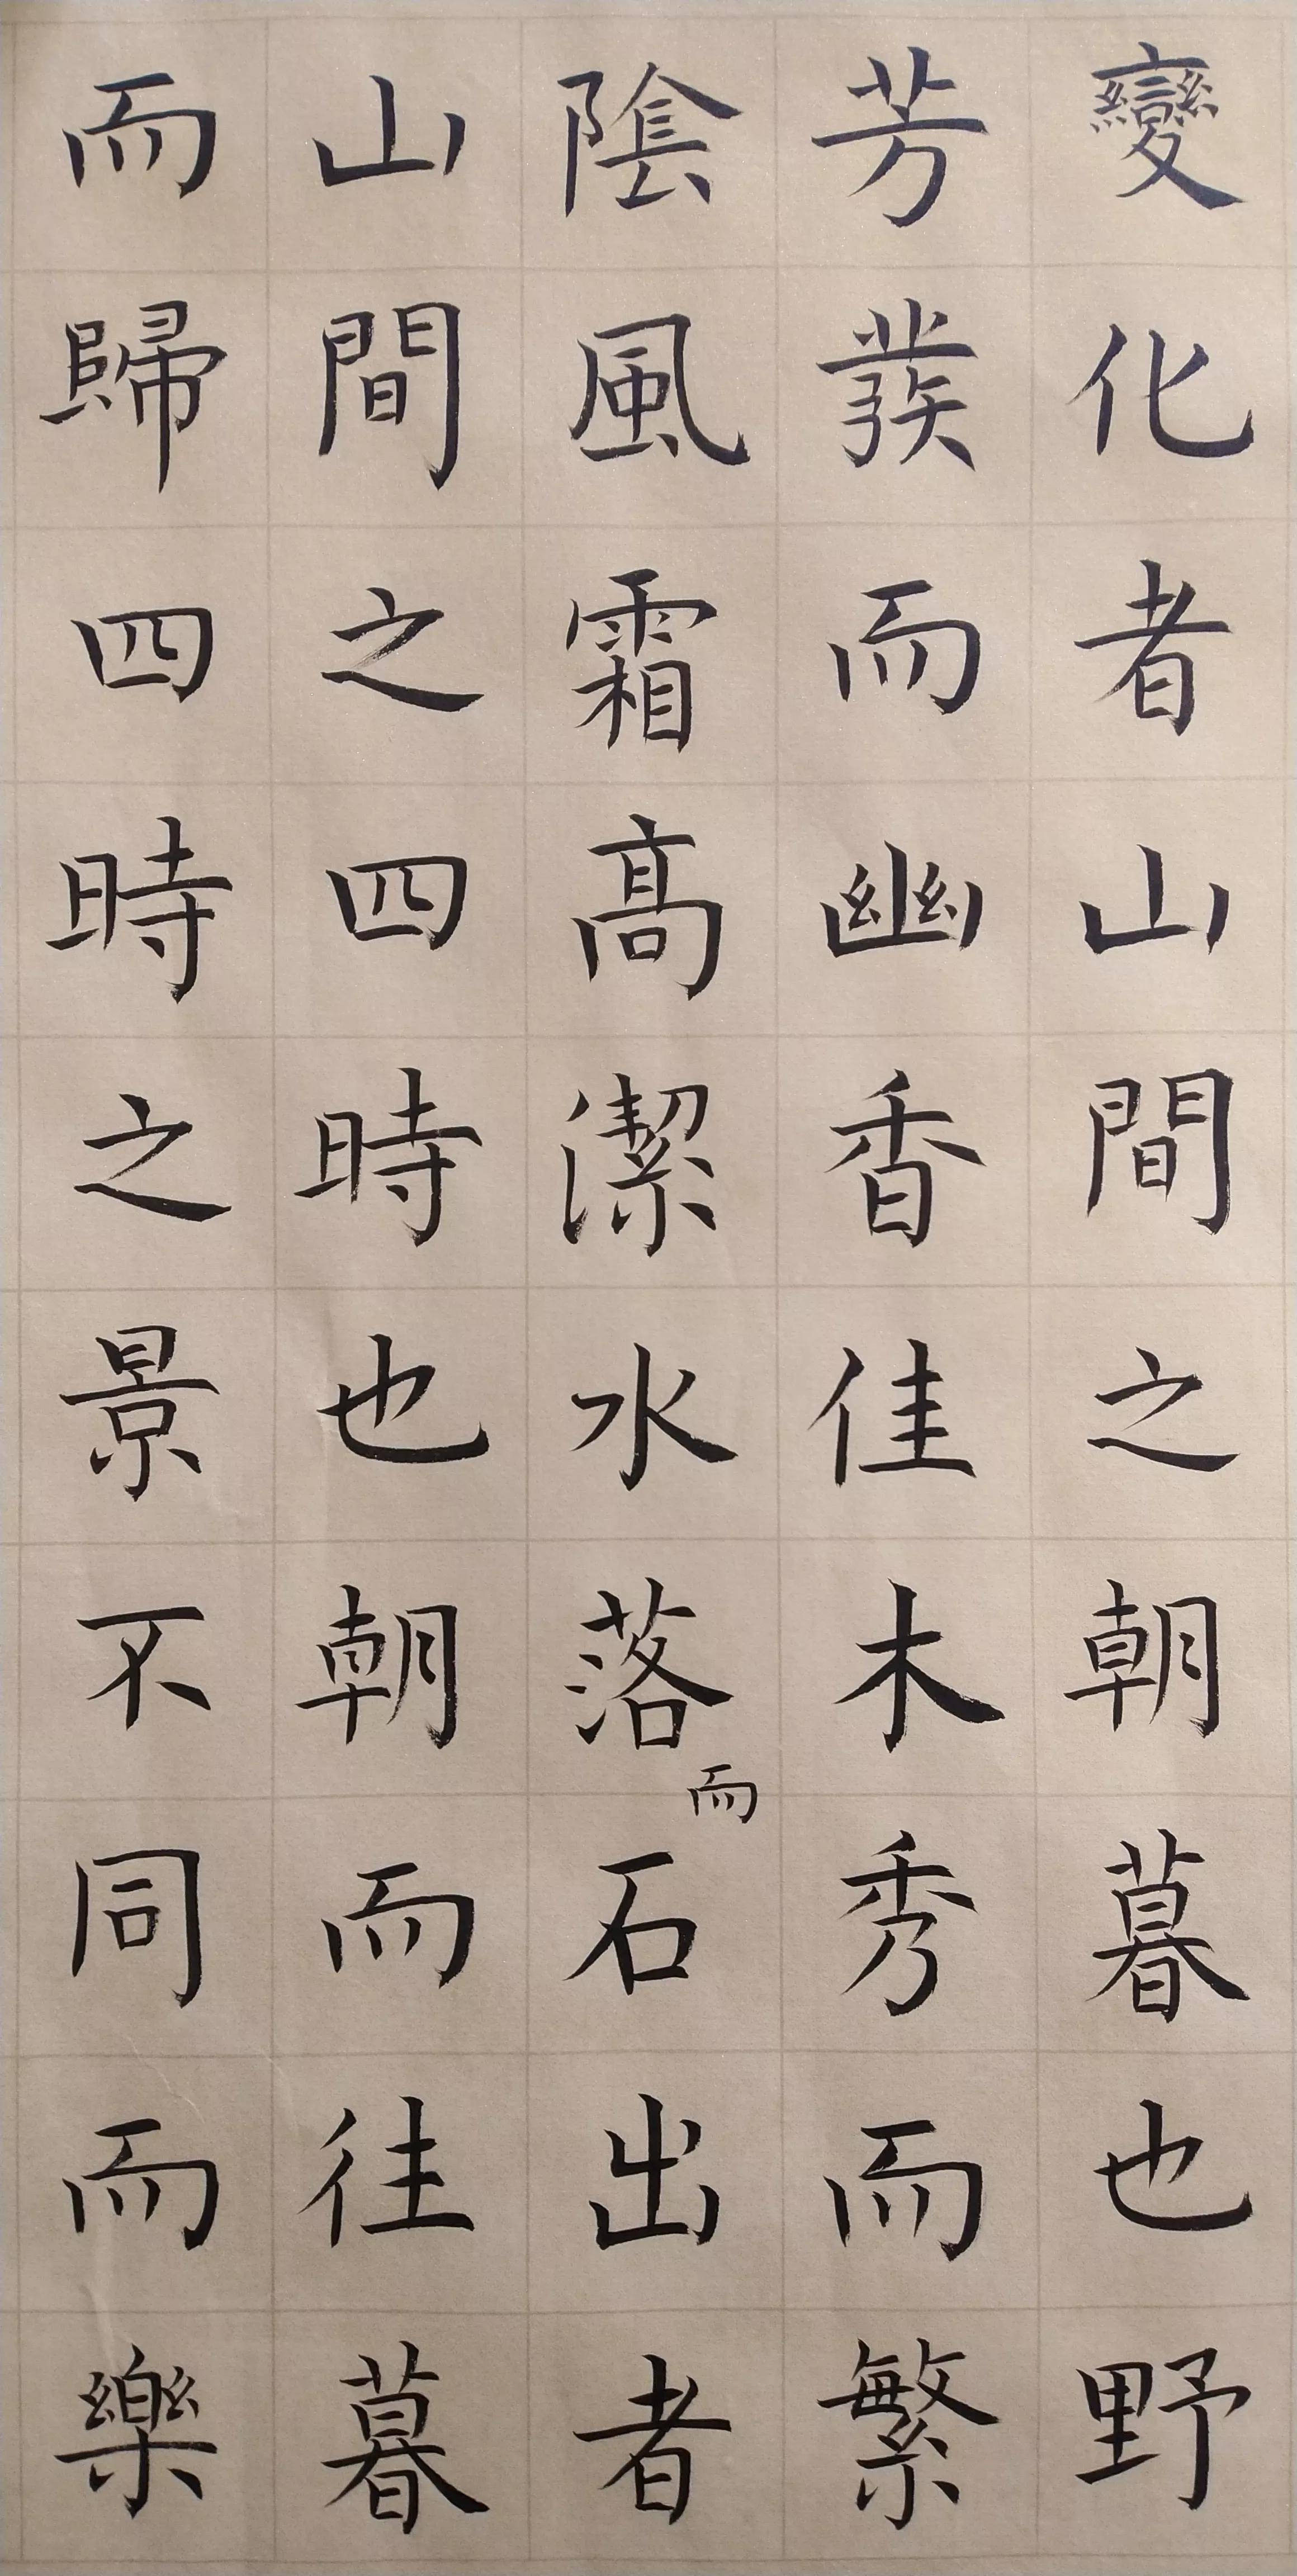 變化者山間之朝暮也野
芳發而幽香佳木秀而繁
陰風霜高潔水落而石出者
山間之四時也朝而往暮
而歸四時之景不同而樂